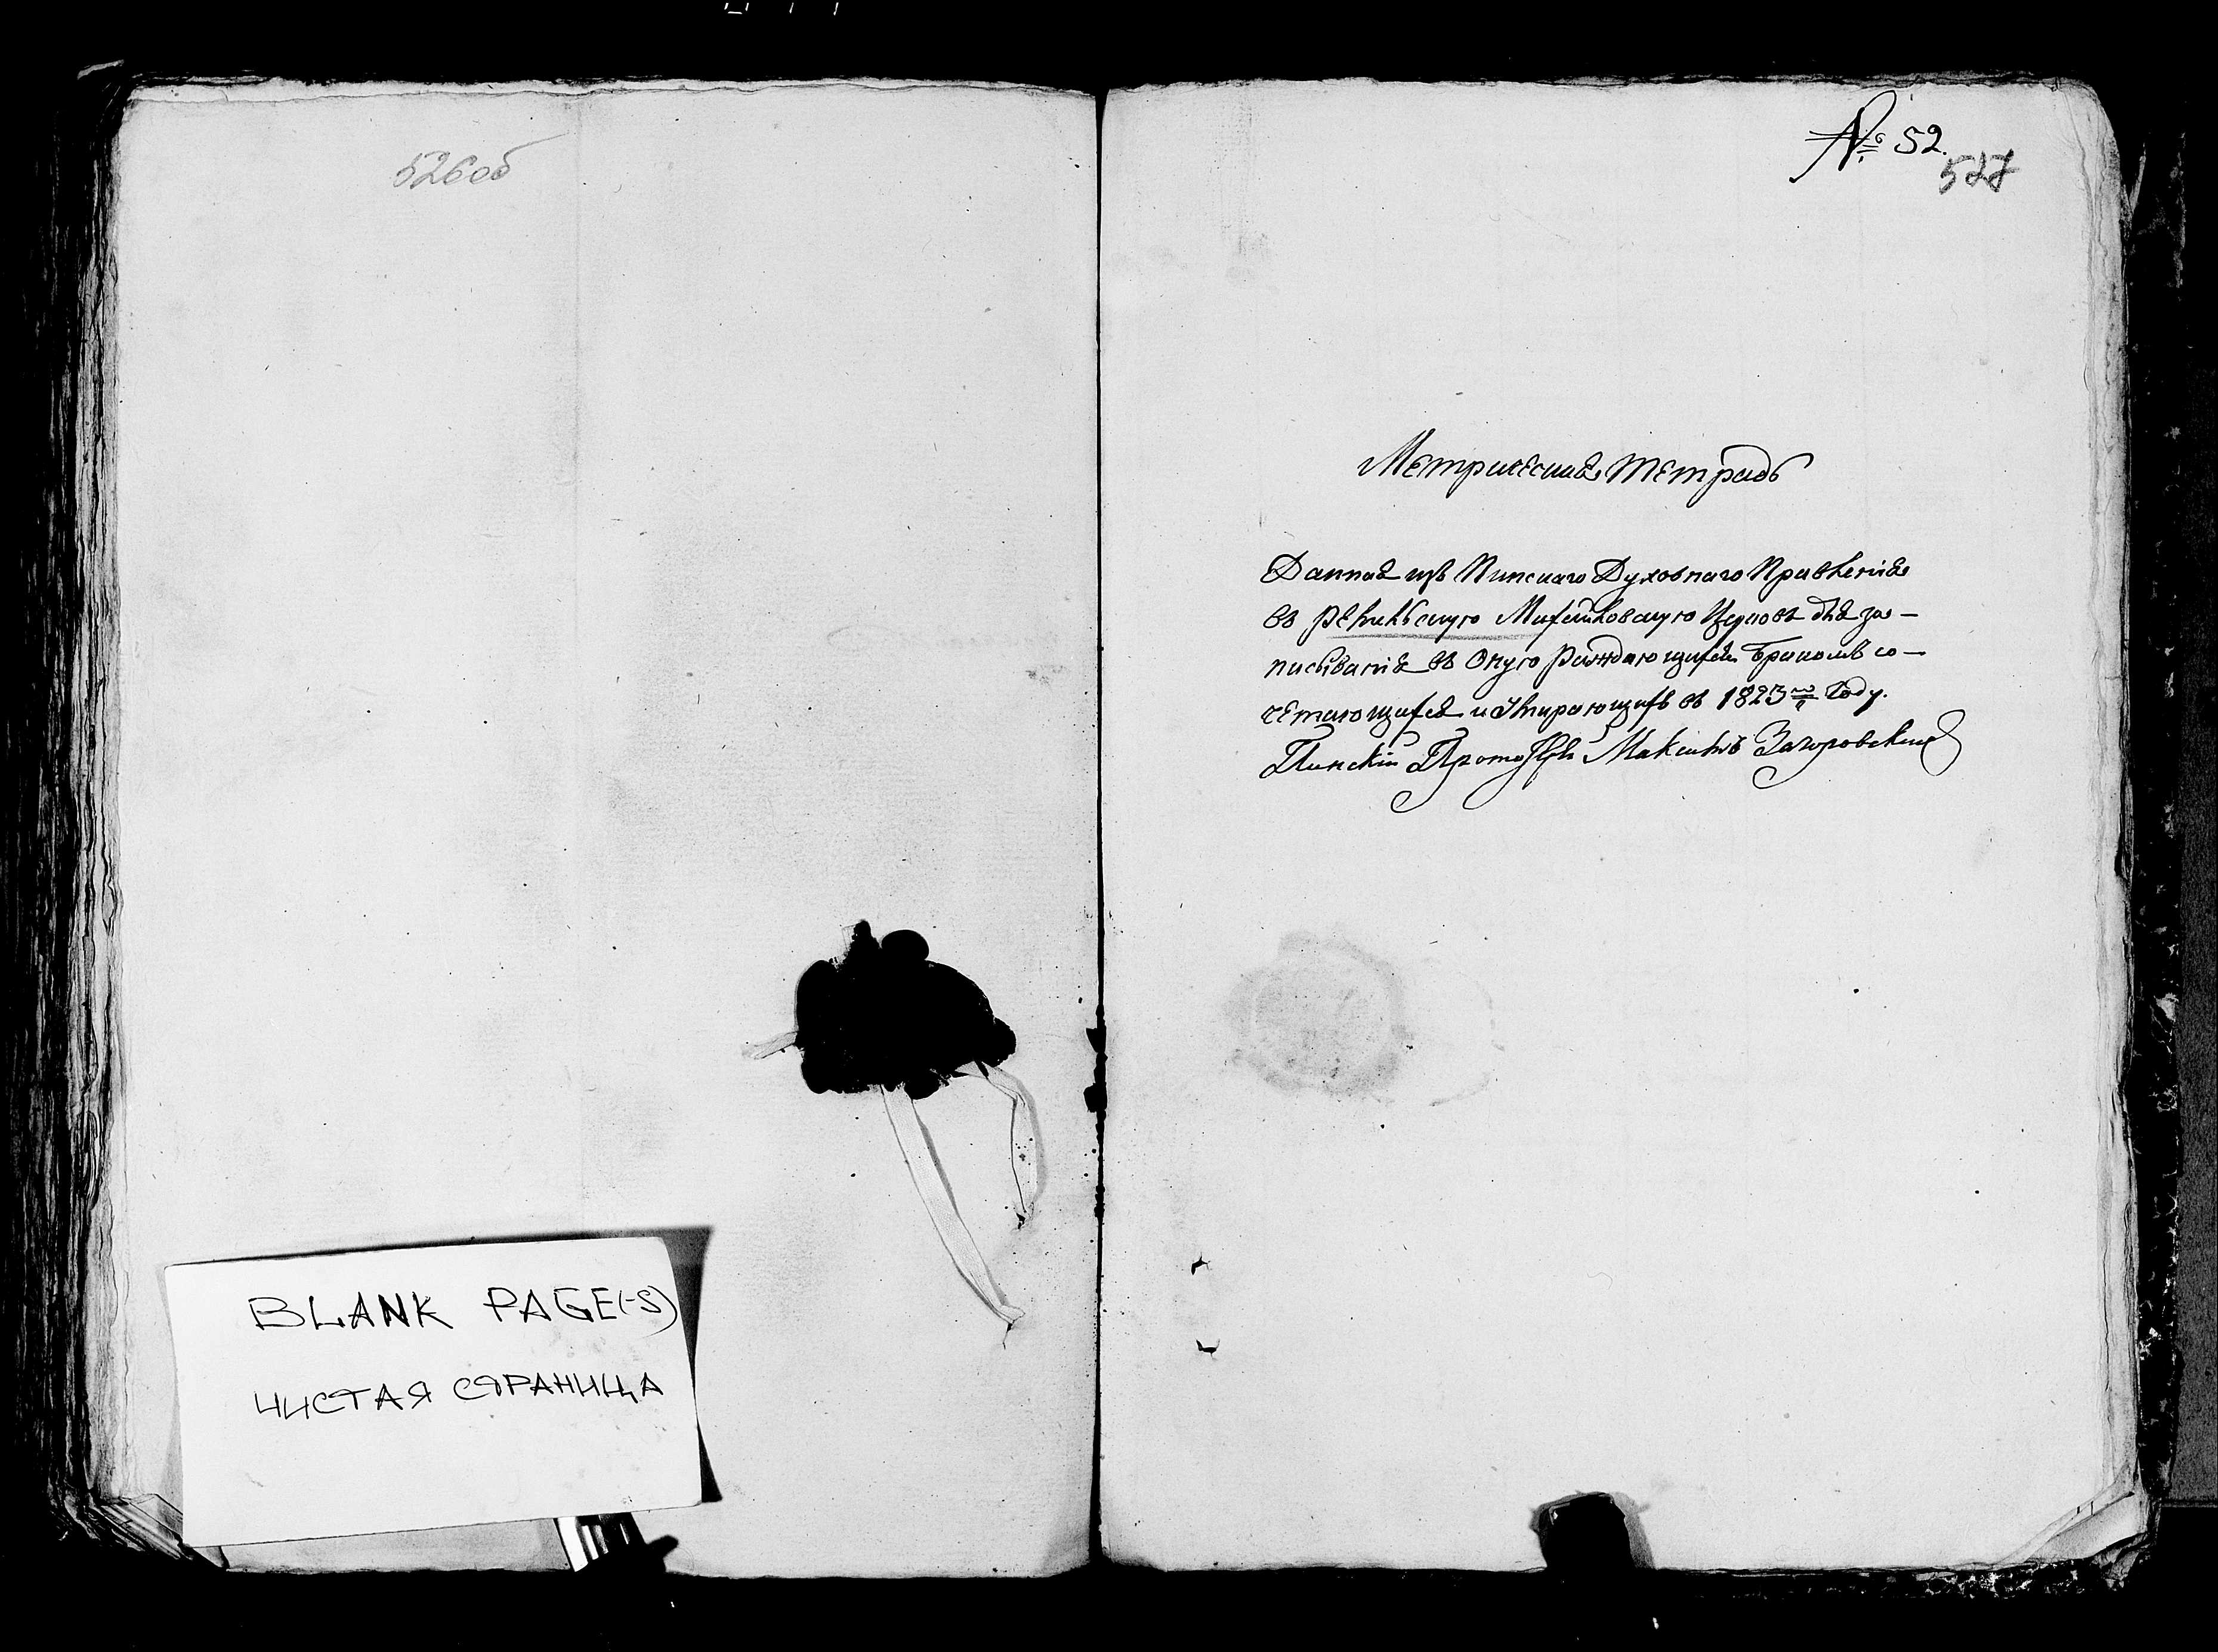 526об
BLANK PAGE(-S)
ЧИСТАЯ СТРАНИЦА
№ 52.
527
Метрическая тетрадь
Данная изъ Пинскаго Духовнаго Правленія
въ Михайловскую Церковь для за-
писыванія въ Оную Раждающихся Бракомъ со-
четающихся и Умирающихъ въ 1823м Году.
Пинскій Максимъ Загоровскій